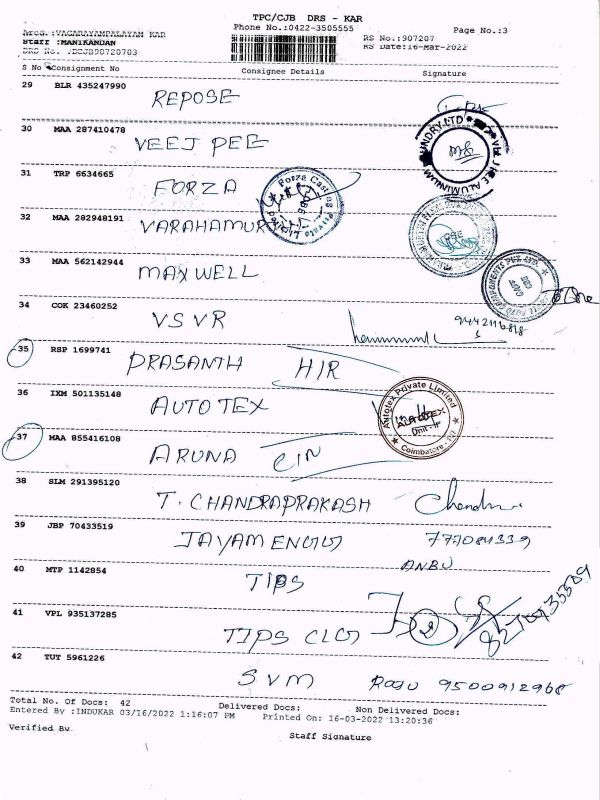 TPC/CJB DRS - KAR
Phone No.:0422-3505555
Page No.:3
Area :VAGARAYAMPALAYAM KAR
Staff :MANIKANDAN
RS No.:907207
RS Date:16-Mar-2022
DRS No. :DCJB90720703
S No Consignment No Consignee Details Signature
29 BLR 435247990 REPOSE
30 MAA 287410478 VEEJ PEE
31 TRP 6634665 FORZA
Forza Casting Private Limited
32 MAA 282948191 VARAHAMUR
33 MAA 562142944 MAXWELL
34 COK 23460252 VSVR
9442116818
35 RSP 1699741 PRASANTH H/R
36 IXM 501135148 AUTOTEX
Autotex Private Limited
AUTOTEX
Unit-II
Coimbatore
37 MAA 855416108 ARUNA CIN
38 SLM 291395120 T. CHANDRAPRAKASH
39 JBP 70433519 JAYAM ENGG
ANBU
40 MTP 1142854 TIPS
41 VPL 935137285 TIPS CLG
42 TUT 5961226 SVM RAJU 9500912968
Total No. Of Docs: 42 Delivered Docs: Non Delivered Docs:
Entered By :INDUKAR 03/16/2022 1:16:07 PM Printed On: 16-03-2022 13:20:36
Verified By.
Staff Signature